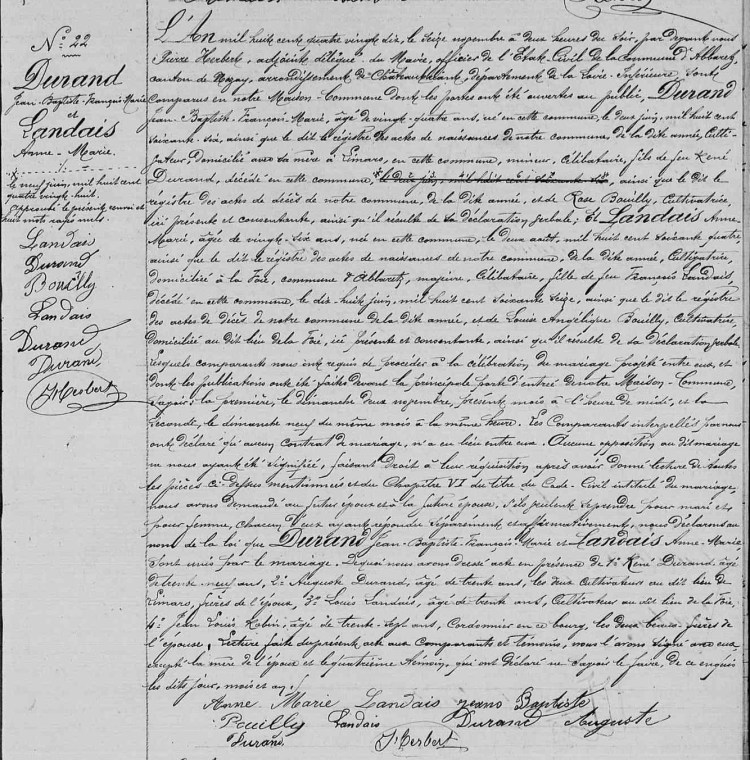 N.° 22
Durand
Jean-Baptiste-François-Marie
et
Landais
Anne-Marie.
le neuf juin, mil huit cent
quatre vingt huit
Approuvé le présent renvoi et
huit mots rayés nuls.
Landais
Durand
Bouilly
Landais
Durand
Durand
Herbert
L'An mil huit cent quatre vingt dix, le Seize novembre à deux heures du soir, par devant nous
Pierre Herbert, adjoint délégué du Maire, officier de l'Etat-Civil de la commune d'Abbaretz,
canton de Nozay, arrondissement de Châteaubriant, département de la Loire-Inférieure, Sont
Comparus en notre Maison-Commune dont les portes ont été ouvertes au public, Durand
Jean-Baptiste-François-Marie, âgé de vingt-quatre ans, né en cette commune, le deux juin, mil huit cent
soixante-six, ainsi que le dit le registre des actes de naissances de notre commune, de la dite année, Culti-
vateur, Domicilié avec sa mère à Limars, en cette commune, mineur, Célibataire, fils de feu René
Durand, décédé en cette commune, le deux juin, mil huit cent soixante six, ainsi que le dit le
registre des actes de décès de notre commune, de la dite année, et de Rose Bouilly, Cultivatrice,
ici présente et consentante, ainsi qu'il résulte de sa déclaration verbale; Et Landais Anne-
Marie, âgée de vingt-six ans, née en cette commune, le deux août, mil huit cent soixante quatre,
ainsi que le dit le registre des actes de naissances de notre commune, de la dite année, Cultivatrice,
domiciliée à la Foie, commune d'Abbaretz, majeure, Célibataire, fille de feu François Landais,
décédé en cette commune, le dix-huit juin, mil huit cent soixante Seize, ainsi que le dit le registre
des actes de décès de notre commune de la dite année, et de Louise Angélique Bouilly, Cultivatrice,
Domiciliée au dit lieu de la Foie, ici présente et consentante, ainsi qu'il résulte de sa Déclaration verbale,
Lesquels comparants nous ont requis de procéder à la célébration du mariage projeté entre eux, et
dont les publications ont été faites devant la principale porte d'entrée de notre Maison-Commune,
Savoir: la première, le dimanche deux novembre, présent mois à l'heure de midi, et la
Seconde, le dimanche neuf du même mois à la même heure. Les Comparants interpellés par nous
ont déclaré qu'aucun contrat de mariage, n'a eu lieu entre eux. Aucune opposition au dit mariage
ne nous ayant été signifiée, faisant droit à leur réquisition après avoir donné lecture de toutes
les pièces ci-dessus mentionnées et du Chapitre VI du titre du Code-Civil intitulé du mariage,
nous avons demandé au futur époux et à la future épouse, s'ils veulent se prendre pour mari et
pour femme, chacun d'eux ayant répondu séparément et affirmativement, nous déclarons au
nom de la loi que Durand Jean-Baptiste-François-Marie et Landais Anne-Marie,
Sont unis par le mariage. De quoi nous avons dressé acte en présence de 1° René Durand, âgé
de trente neuf ans, 2° Auguste Durand, âgé de trente ans, les deux Cultivateurs au dit lieu de
Limars, frères de l'époux, 3° Louis Landais, âgé de trente ans, Cultivateur au dit lieu de la Foie,
4° Jean Louis Robin, âgé de trente-sept ans, Cordonnier en ce bourg, les deux beaux-frères de
l'épouse. Lecture faite du présent acte aux Comparants et témoins, nous l'avons signé avec eux,
excepté la mère de l'époux et le quatrième témoin, qui ont déclaré ne savoir le faire, de ce enquis
les dits jour, mois et an.
Anne Marie Landais jeans Baptiste
Bouilly Landais Durand Auguste
Durand Herbert